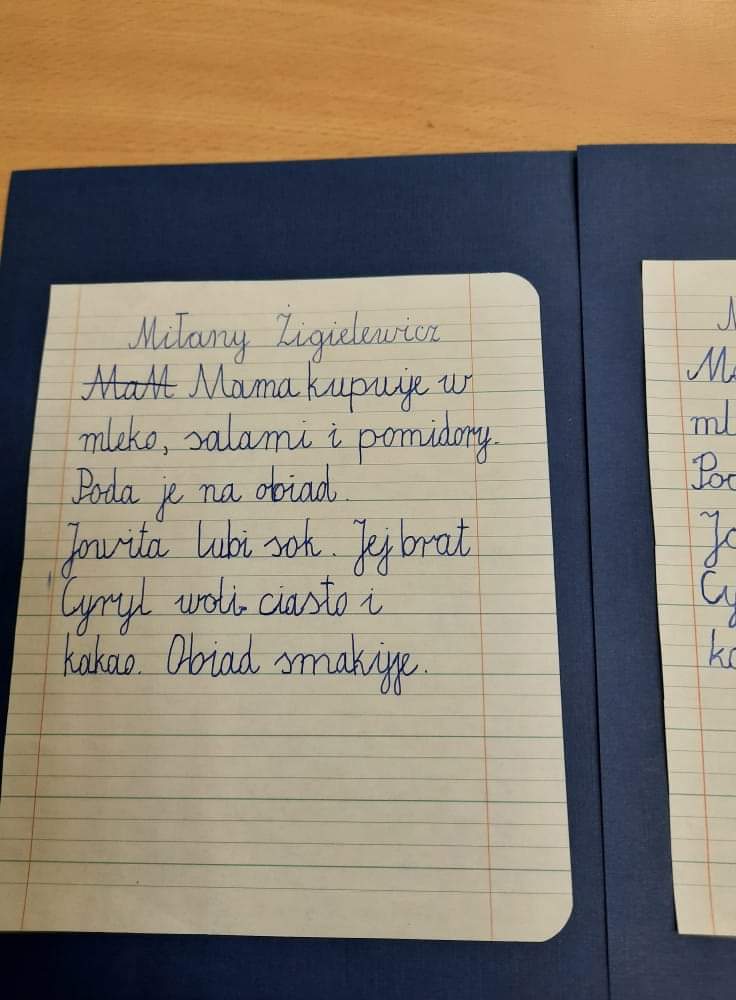 Miłany Żigielewicz
MaM Mama kupuje w
mleko, salami i pomidory.
Poda je na obiad.
Jowita lubi sok. Jej brat
Cyryl woli ciasto i
kakao. Obiad smakije.
M
Ma
ml
Pod
Jo
Cy
ka